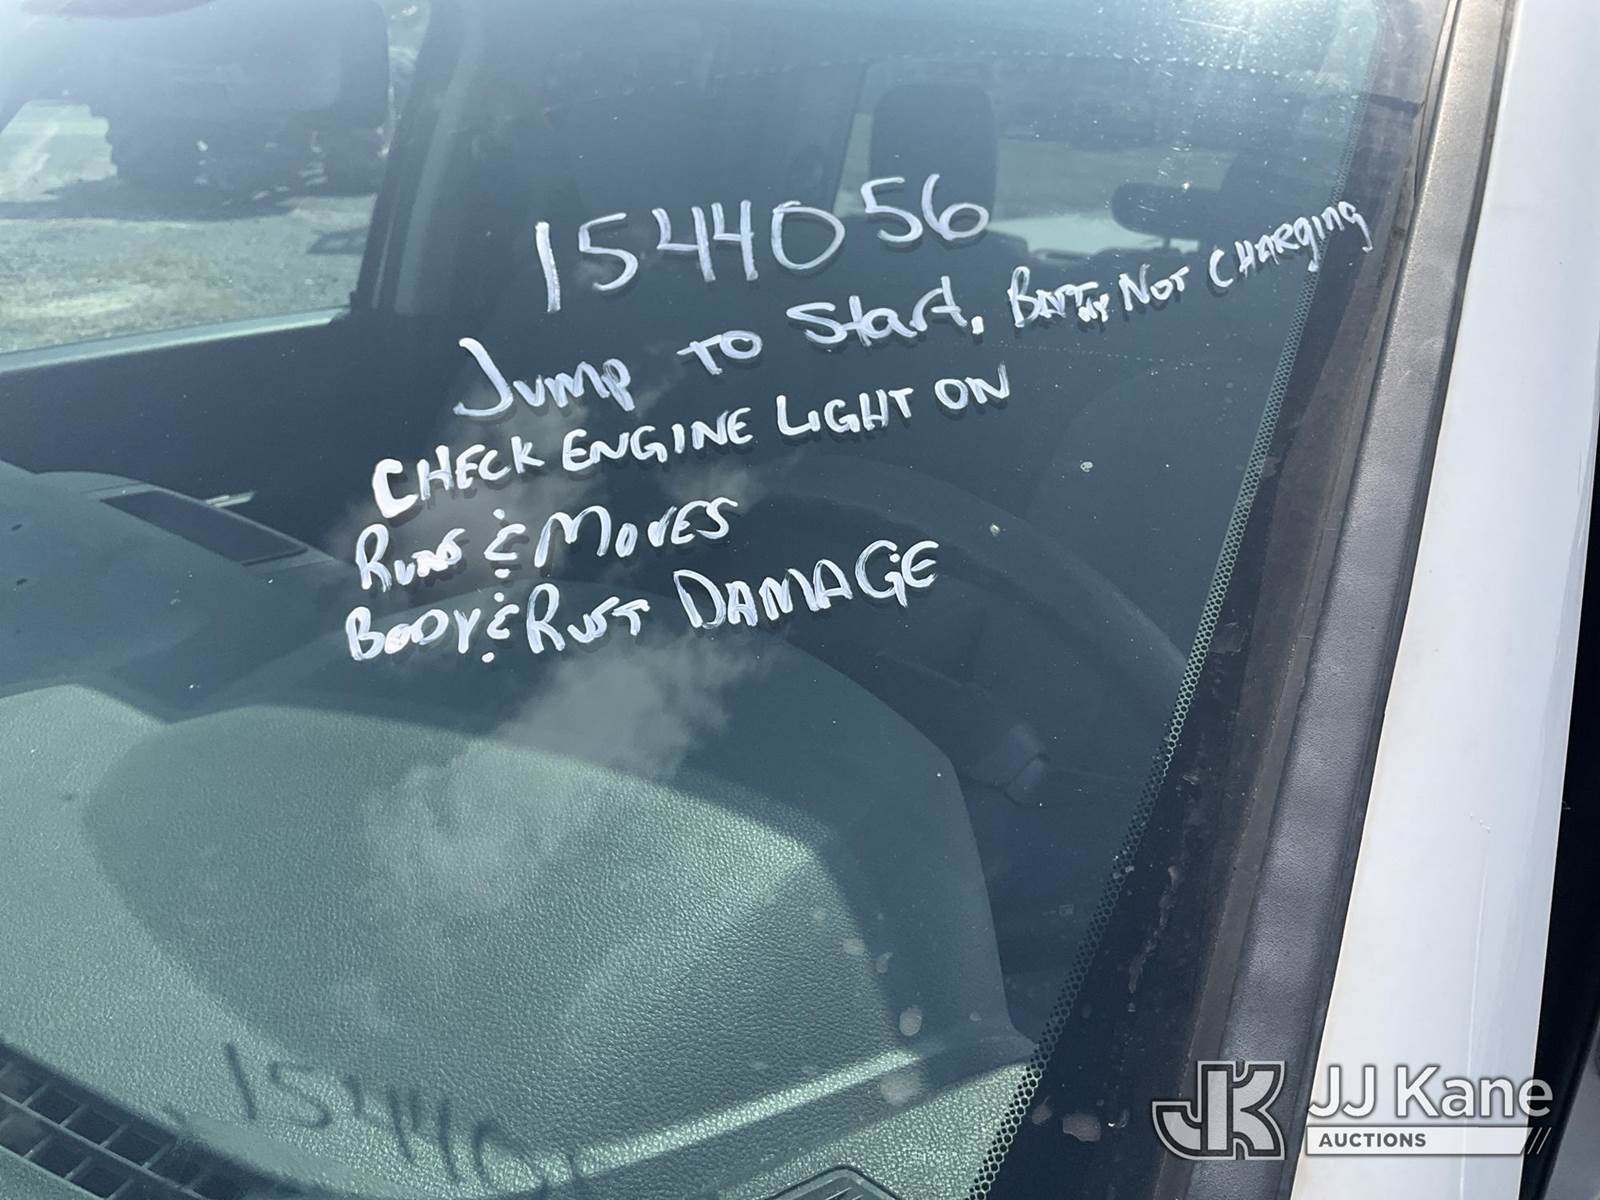 1544056
Jump to Start. Battery Not Charging
CHECK ENGINE LIGHT ON
Runs & Moves
Body & Rust DAMAGE
15440
JK JJ Kane
AUCTIONS